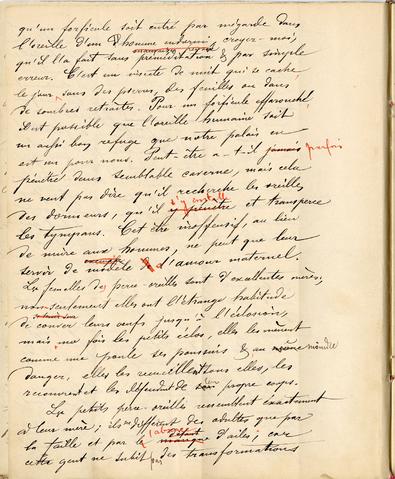 qu'un forficule soit entré par mégarde dans
l'oreille d'un homme endormi, croyez-moi,
qu'il l'a fait sans préméditation & par simple
erreur. C'est un insecte de nuit qui se cache
le jour sous des pierres, des feuilles ou dans
de sombres retraites. Pour un forficule effarouché
il est possible que l'oreille humaine soit
un aussi bon refuge que notre palais en
est un pour nous. Peut-être a-t-il jamais parfois
pénétré dans semblable caverne, mais cela
ne veut pas dire qu'il recherche les oreilles
s'y installe
des dormeurs, qu'il y pénètre et transperce
les tympans. Cet être inoffensif, au lieu
de nuire aux hommes, ne peut que leur
exemple
servir de modèle d'amour maternel.
Les femelles des perce-oreilles sont d'excellentes mères;
non seulement elles ont l'étrange habitude
de couver leurs oeufs jusqu'à l'éclosion,
mais une fois les petits éclos, elles les mènent
comme une poule ses poussins & au moindre
danger, elles les recueillent sous elles, les
recouvrent et les défendent de leur propre corps.
Les petits perce-oreille ressemblent exactement
à leur mère; ils ne diffèrent des adultes que par
l'absence
la taille et par le manque d'ailes, car
cette gent ne subit pas des transformations